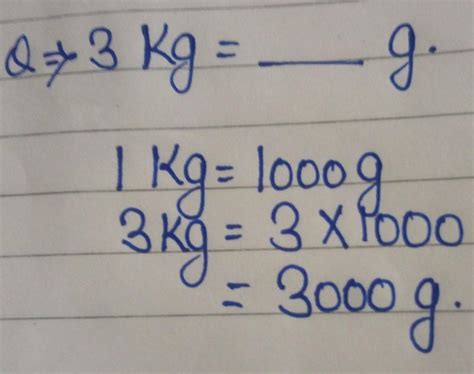 Q⇒ 3 Kg = ___ g.
1 Kg = 1000 g
3 Kg = 3 × 1000
= 3000 g.